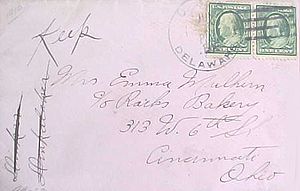 Keep
DELAWARE
Mrs Emma Mulhern
c/o Rarks Bakery
313 W. 6th St
Cincinnati
Ohio